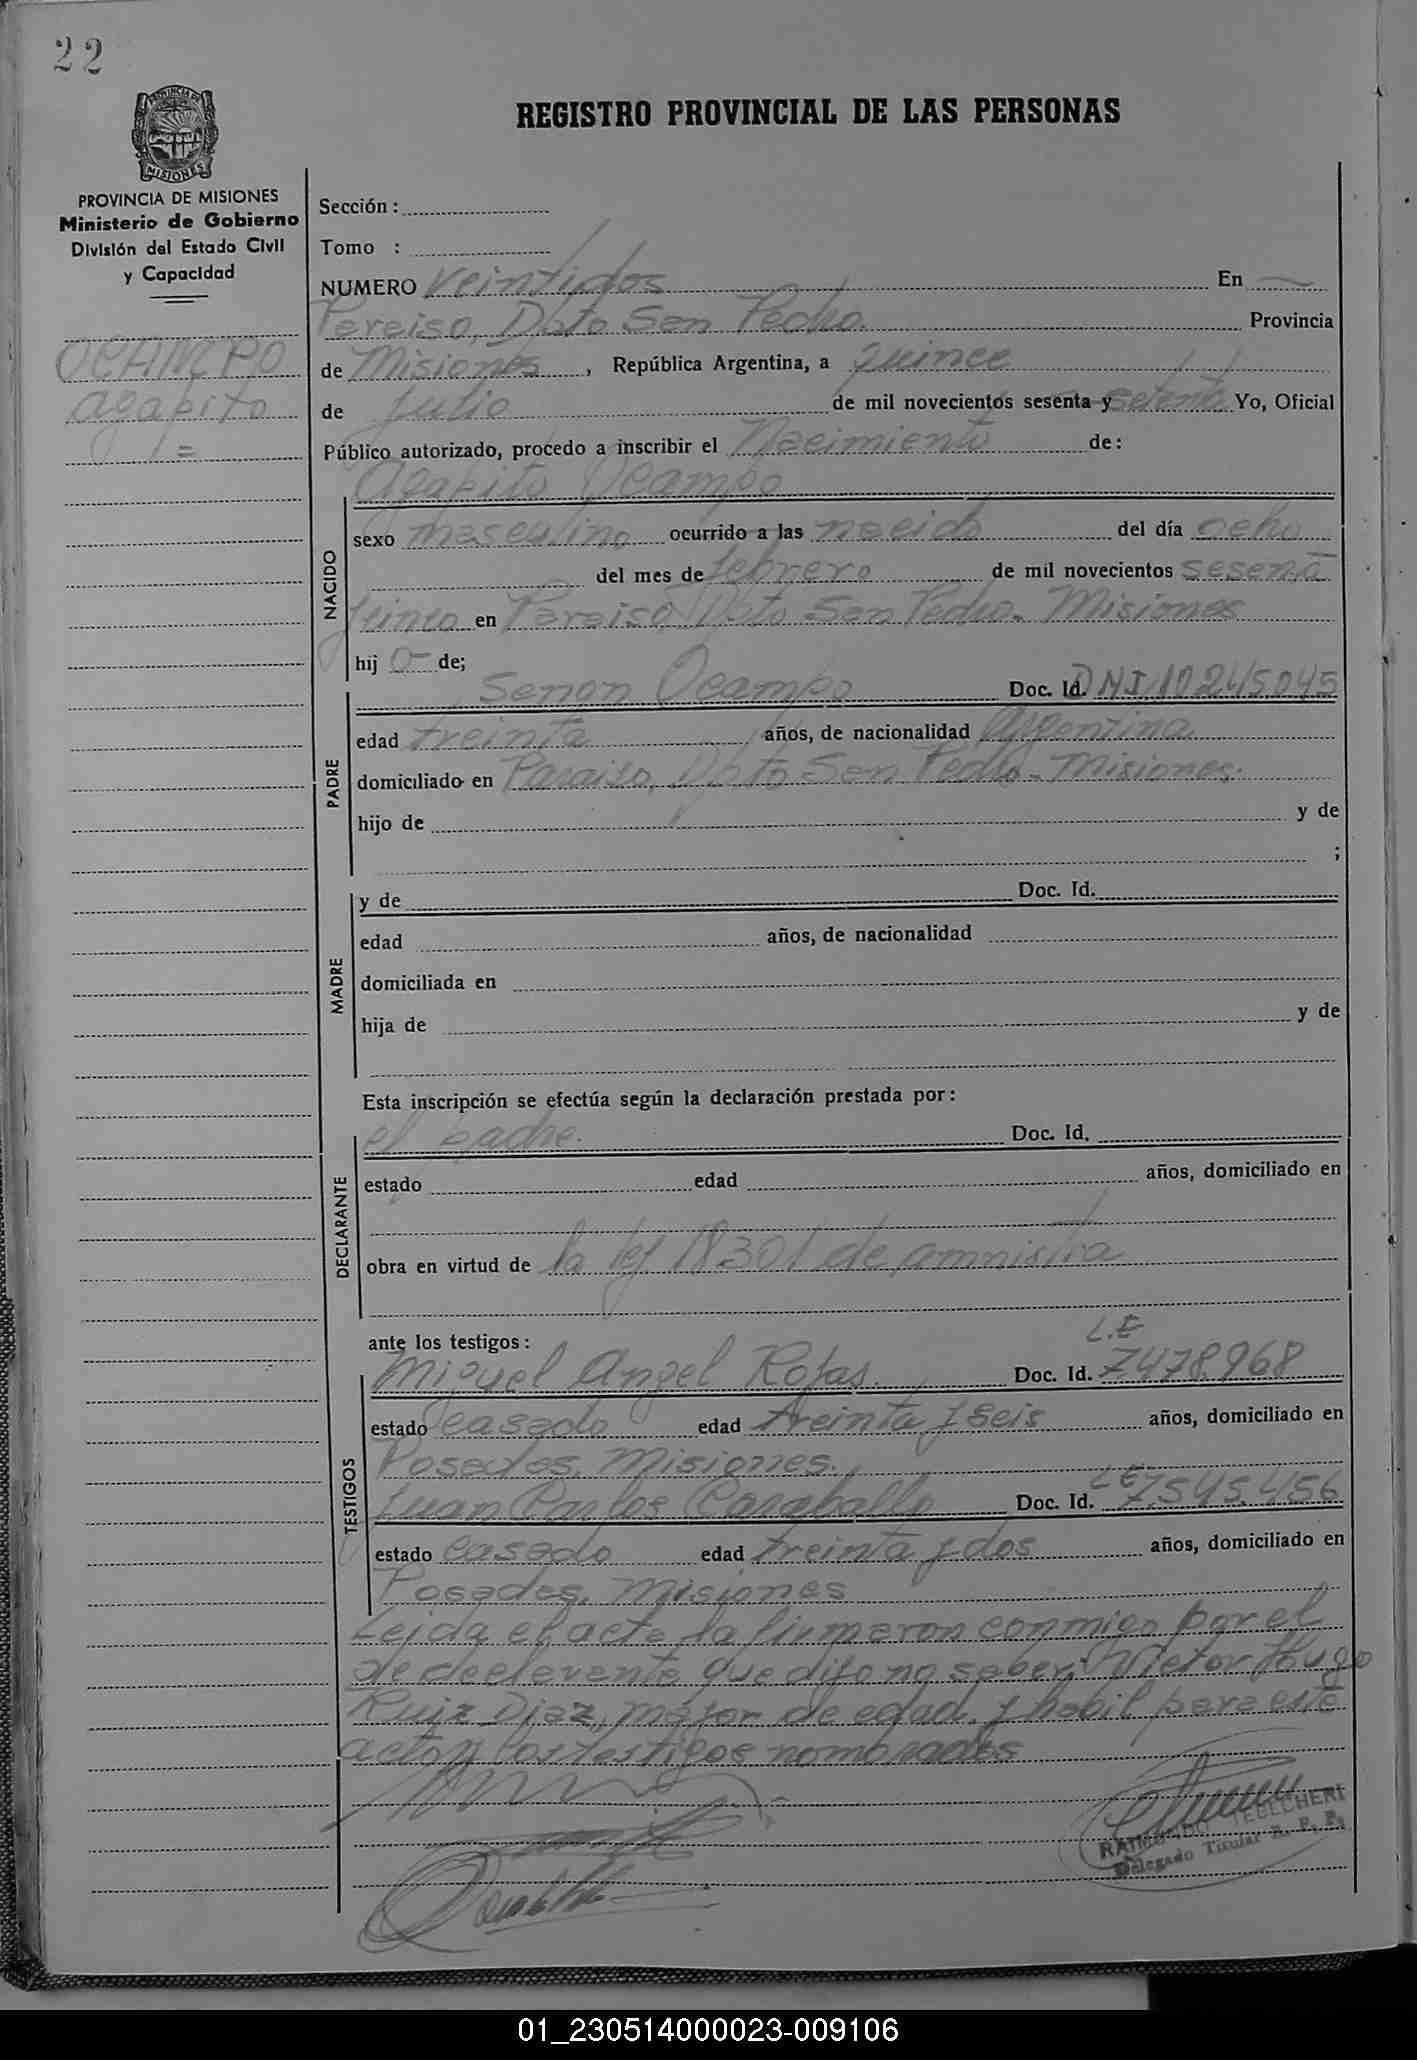 22
REGISTRO PROVINCIAL DE LAS PERSONAS
PROVINCIA DE
MISIONES
PROVINCIA DE MISIONES
Ministerio de Gobierno
División del Estado Civil
y Capacidad
OCAMPO
Agapito
=
Sección :
Tomo :
NUMERO Veintidos En
Pereiso, Dpto Sen Pedro. Provincia
de Misiones, República Argentina, a Quince
de Julio de mil novecientos sesenta y setenta Yo, Oficial
Público autorizado, procedo a inscribir el Nacimiento de:
Agapito Ocampo
NACIDO
sexo masculino ocurrido a las nacido del día ocho
del mes de febrero de mil novecientos sesenta
y cinco en Paraiso, Dpto San Pedro. Misiones
hij o de;
PADRE
Senon Ocampo Doc. Id. DNI 10.245.045
edad treinta años, de nacionalidad Argentina
domiciliado en Paraiso, Dpto San Pedro - Misiones.
hijo de y de
;
MADRE
y de Doc. Id.
edad años, de nacionalidad
domiciliada en
hija de y de
Esta inscripción se efectúa según la declaración prestada por:
DECLARANTE
el padre. Doc. Id.
estado edad años, domiciliado en
obra en virtud de la ley 18301 de amnistia
ante los testigos:
TESTIGOS
Miguel Angel Rojas. Doc. Id. L.E 7.478.968
estado casado edad treinta y seis años, domiciliado en
Posadas. Misiones.
Juan Carlos Caraballo Doc. Id. L E 7.545.456
estado casado edad treinta y dos años, domiciliado en
Posadas, Misiones
Leida el acta, la firmaron conmigo por el
que dijo no saber: Victor Hugo
Ruiz Diaz, mayor de edad y habil para este
acto y los testigos nombrados
Delegado Titular R. P. P.
01_230514000023-009106